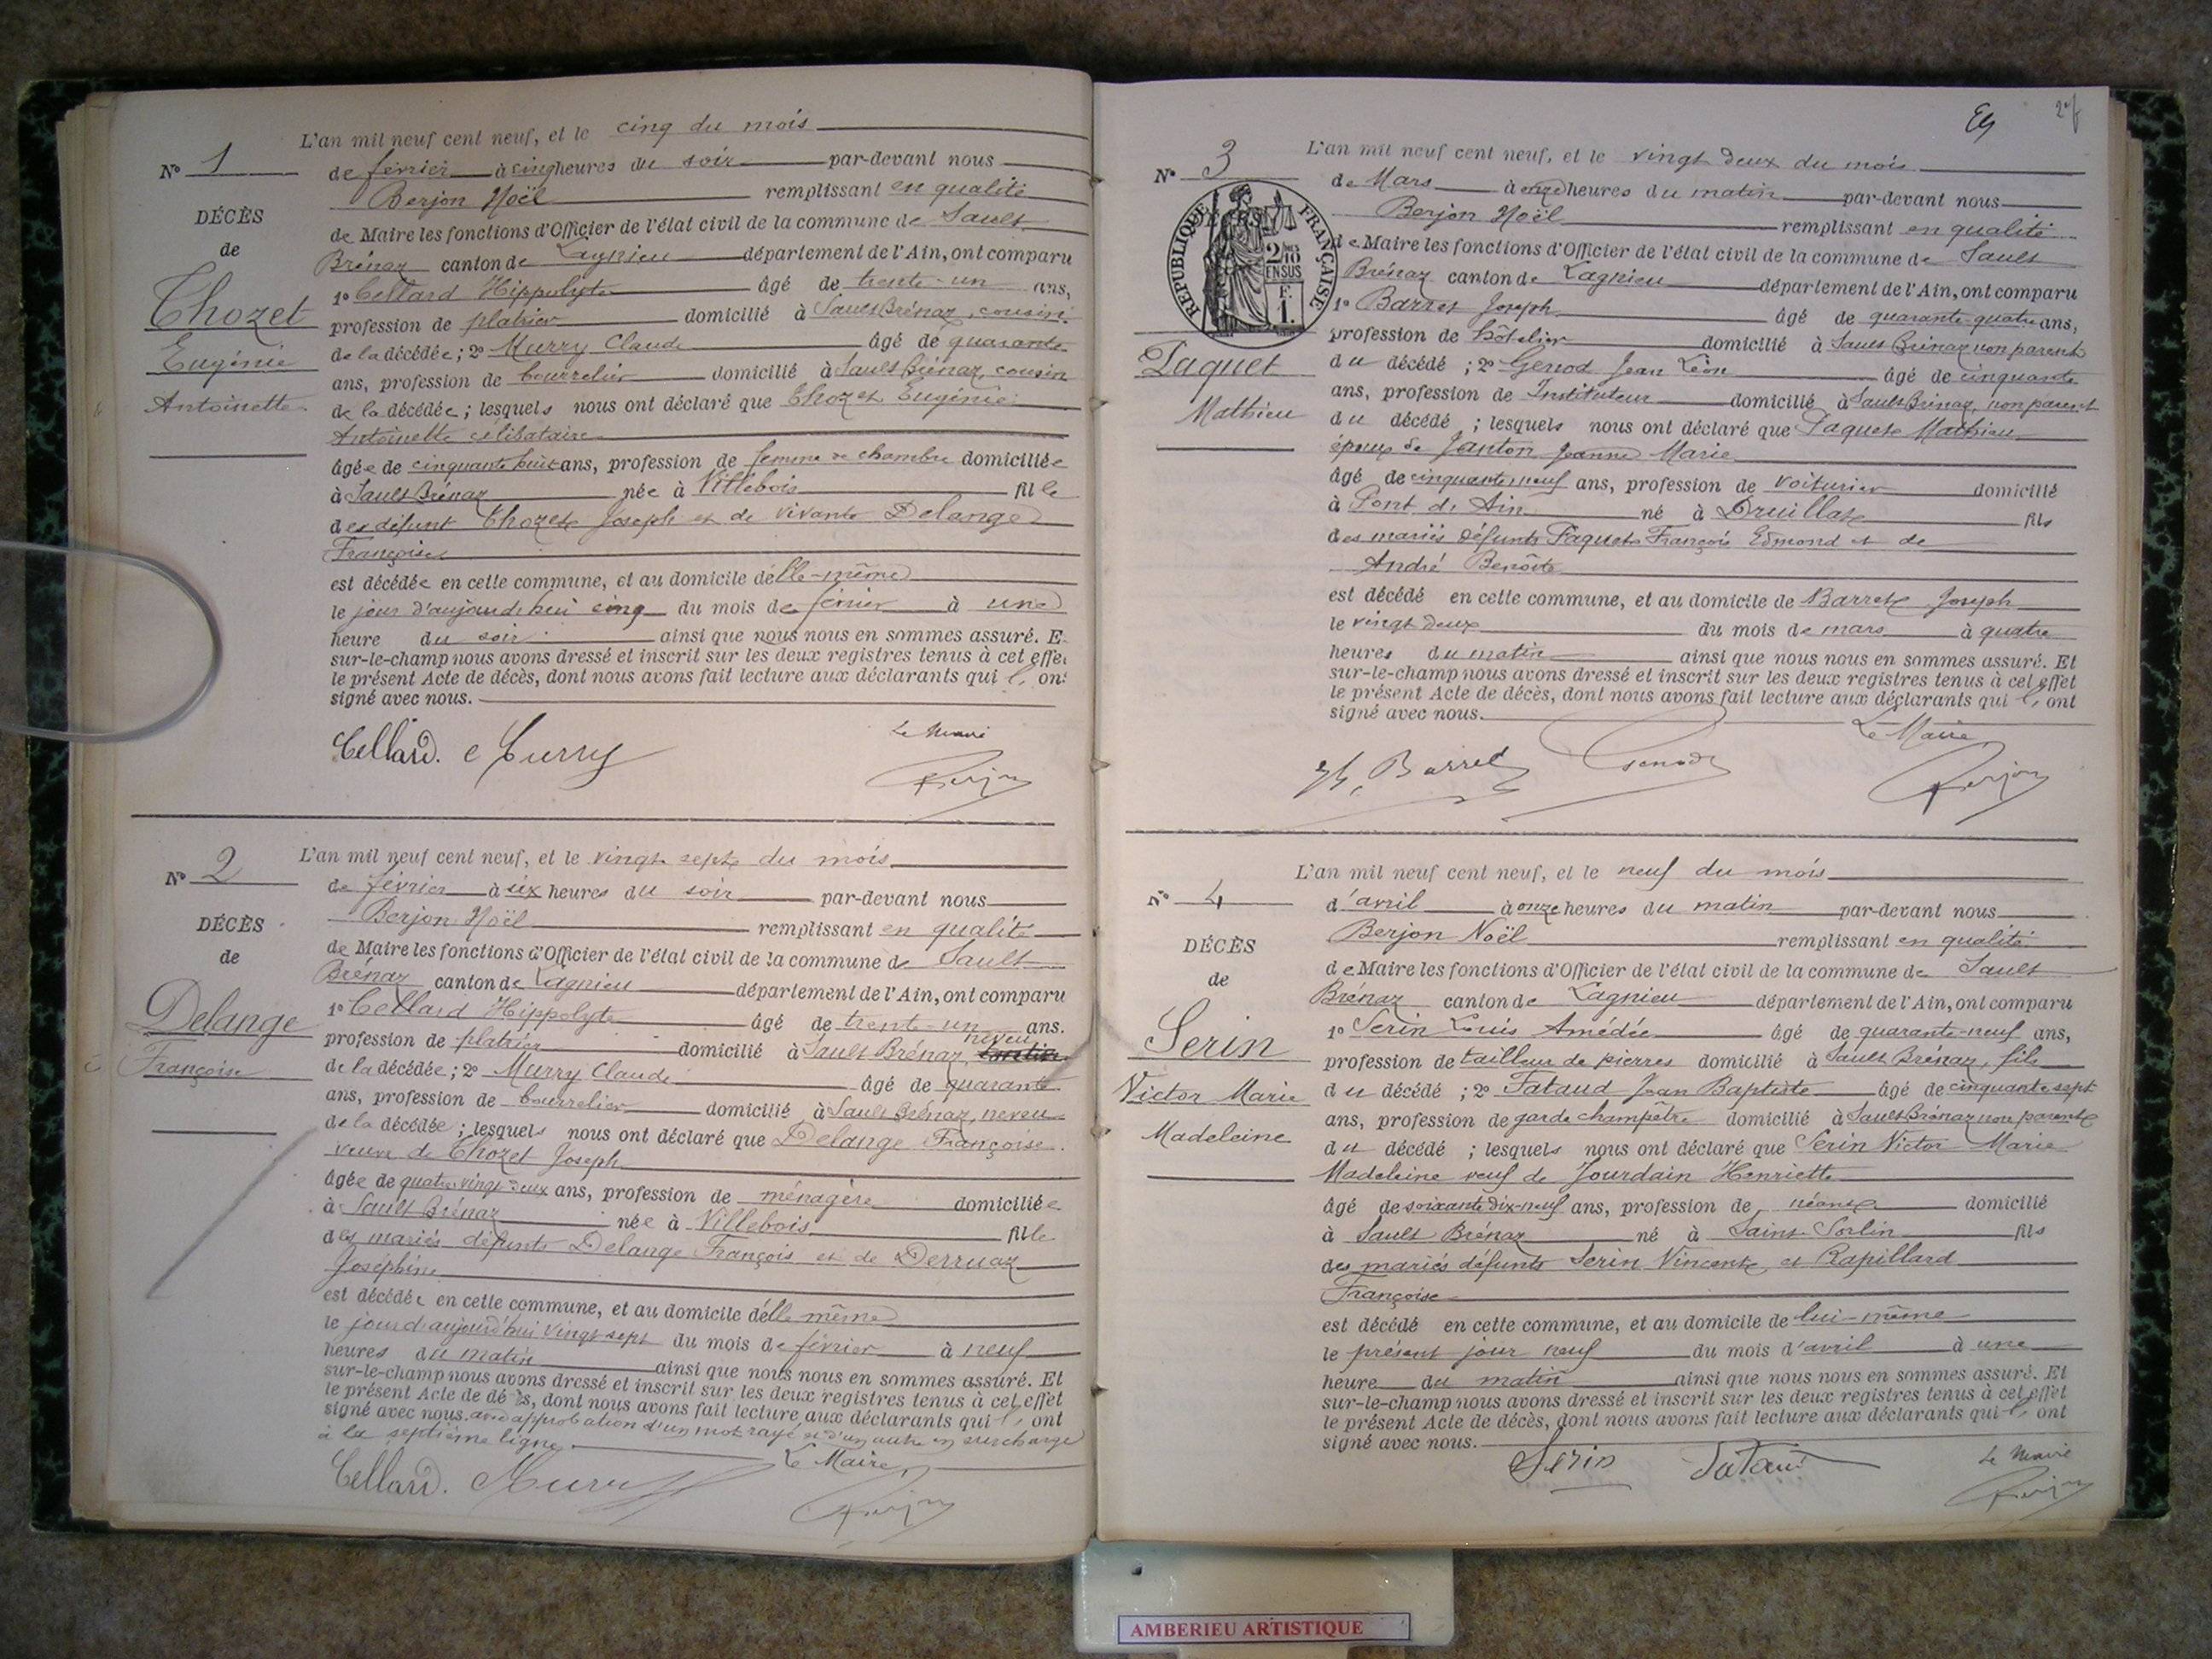 L'an mil neuf cent neuf, et le cinq du mois
N° 1
de février à cinq heures du soir par-devant nous
Berjon Noël remplissant en qualité
DÉCÈS
de Maire les fonctions d'Officier de l'état civil de la commune de Sault
de
Brénaz canton de Lagnieu département de l'Ain, ont comparu
1° Cellard Hippolyte âgé de trente-un ans,
Thozet
profession de platrier domicilié à Sault Brénaz, cousin
Eugénie
de la décédée; 2° Murry Claude âgé de quarante
ans, profession de bourrelier domicilié à Sault Brénaz, cousin
Antoinette
de la décédée; lesquels nous ont déclaré que Thozet Eugénie
Antoinette célibataire
âgée de cinquante huit ans, profession de femme de chambre domiciliée
à Sault Brénaz née à Villebois fille
des défunt Thozet Joseph et de vivante Delange
Françoise
est décédée en cette commune, et au domicile d'elle-même
le jour d'aujourd'hui cinq du mois de février à une
heure du soir ainsi que nous nous en sommes assuré. E
sur-le-champ nous avons dressé et inscrit sur les deux registres tenus à cet effe
le présent Acte de décès, dont nous avons fait lecture aux déclarants qui l' on
signé avec nous.
Le Maire
Cellard. C Murry
Berjon
L'an mil neuf cent neuf, et le vingt sept du mois
N° 2
de février à six heures du soir par-devant nous
Berjon Noël remplissant en qualité
DÉCÈS
de Maire les fonctions d'Officier de l'état civil de la commune de Sault
de
Brénaz canton de Lagnieu département de l'Ain, ont comparu
1° Cellard Hippolyte âgé de trente-un ans.
Delange
neveu
profession de platrier domicilié à Sault Brénaz,
Françoise
de la décédée; 2° Murry Claude âgé de quarante
ans, profession de bourrelier domicilié à Sault Brénaz, neveu
de la décédée; lesquels nous ont déclaré que Delange Françoise
veuve de Thozet Joseph
âgée de quatre vingt deux ans, profession de ménagère domiciliée
à Sault Brénaz née à Villebois fille
des mariés défunts Delange François et de Derruaz
Joséphine
est décédée en cette commune, et au domicile d'elle même
le jour d'aujourd'hui vingt-sept du mois de février à neuf
heures du matin ainsi que nous nous en sommes assuré. Et
sur-le-champ nous avons dressé et inscrit sur les deux registres tenus à cet effet
le présent Acte de décès, dont nous avons fait lecture aux déclarants qui l' ont
signé avec nous. avec approbation d'un mot rayé et d'un autre en surcharge
à la septième ligne.
Le Maire
Cellard. Murry
Berjon
L'an mil neuf cent neuf, et le vingt deux du mois
N° 3
de Mars à onze heures du matin par-devant nous
Berjon Noël remplissant en qualité
RÉPUBLIQUE FRANÇAISE
2/10 EN SUS
F. 1.
de Maire les fonctions d'Officier de l'état civil de la commune de Sault
Brénaz canton de Lagnieu département de l'Ain, ont comparu
1° Barret Joseph âgé de quarante-quatre ans,
profession de hôtelier domicilié à Sault Brénaz non parent
Paquet
du décédé; 2° Genod Jean Léon âgé de cinquante
ans, profession de Instituteur domicilié à Sault Brénaz, non parent
Mathieu
du décédé; lesquels nous ont déclaré que Paquet Mathieu
époux de Janton Jeanne Marie
âgé de cinquante neuf ans, profession de voiturier domicilié
à Pont d'Ain né à Druillat fils
des mariés défunts Paquet François Edmond et de
André Benoîte
est décédé en cette commune, et au domicile de Barret Joseph
le vingt deux du mois de mars à quatre
heures du matin ainsi que nous nous en sommes assuré. Et
sur-le-champ nous avons dressé et inscrit sur les deux registres tenus à cet effet
le présent Acte de décès, dont nous avons fait lecture aux déclarants qui l' ont
signé avec nous.
Le Maire
Barret Genod
Berjon
L'an mil neuf cent neuf, et le neuf du mois
N° 4
d'avril à onze heures du matin par-devant nous
Berjon Noël remplissant en qualité
DÉCÈS
de Maire les fonctions d'Officier de l'état civil de la commune de Sault
de
Brénaz canton de Lagnieu département de l'Ain, ont comparu
1° Serin Louis Amédée âgé de quarante-neuf ans,
Serin
profession de tailleur de pierres domicilié à Sault Brénaz, fils
Victor Marie
du décédé; 2° Fataud Jean Baptiste âgé de cinquante sept
ans, profession de garde champêtre domicilié à Sault Brénaz non parent
Madeleine
du décédé; lesquels nous ont déclaré que Serin Victor Marie
Madeleine veuf de Jourdain Henriette
âgé de soixante dix-neuf ans, profession de néant domicilié
à Sault Brénaz né à Saint-Sorlin fils
des mariés défunts Serin Vincent, et Rapillard
Françoise
est décédé en cette commune, et au domicile de lui-même
le présent jour neuf du mois d'avril à une
heure du matin ainsi que nous nous en sommes assuré. Et
sur-le-champ nous avons dressé et inscrit sur les deux registres tenus à cet effet
le présent Acte de décès, dont nous avons fait lecture aux déclarants qui l' ont
signé avec nous.
Serin Fataud
Le Maire
Berjon
AMBERIEU ARTISTIQUE